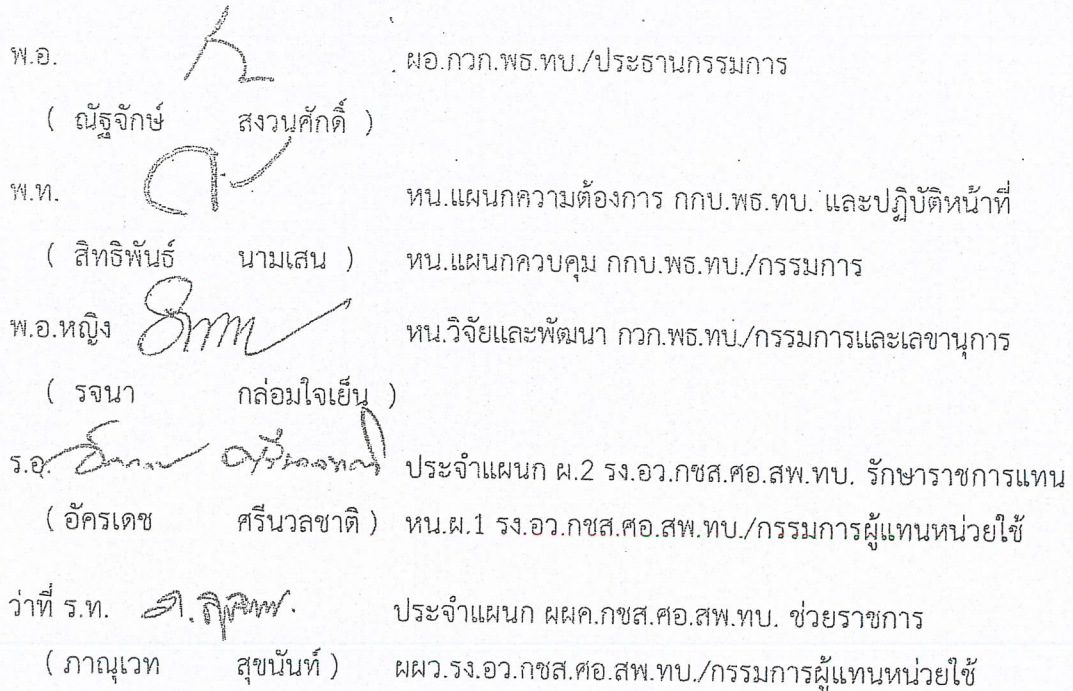 พ.อ. ผอ.กวก.พธ.ทบ./ประธานกรรมการ
( ณัฐจักษ์ สงวนศักดิ์ )
พ.ท. หน.แผนกความต้องการ กกบ.พธ.ทบ. และปฏิบัติหน้าที่
( สิทธิพันธ์ นามเสน ) หน.แผนกควบคุม กกบ.พธ.ทบ./กรรมการ
พ.อ.หญิง หน.วิจัยและพัฒนา กวก.พธ.ทบ./กรรมการและเลขานุการ
( รจนา กล่อมใจเย็น )
ร.อ. ประจำแผนก ผ.2 รง.อว.กซส.ศอ.สพ.ทบ. รักษาราชการแทน
( อัครเดช ศรีนวลชาติ ) หน.ผ.1 รง.อว.กซส.ศอ.สพ.ทบ./กรรมการผู้แทนหน่วยใช้
ว่าที่ ร.ท. ประจำแผนก ผผค.กซส.ศอ.สพ.ทบ. ช่วยราชการ
( ภาณุเวท สุขนันท์ ) ผผว.รง.อว.กซส.ศอ.สพ.ทบ./กรรมการผู้แทนหน่วยใช้